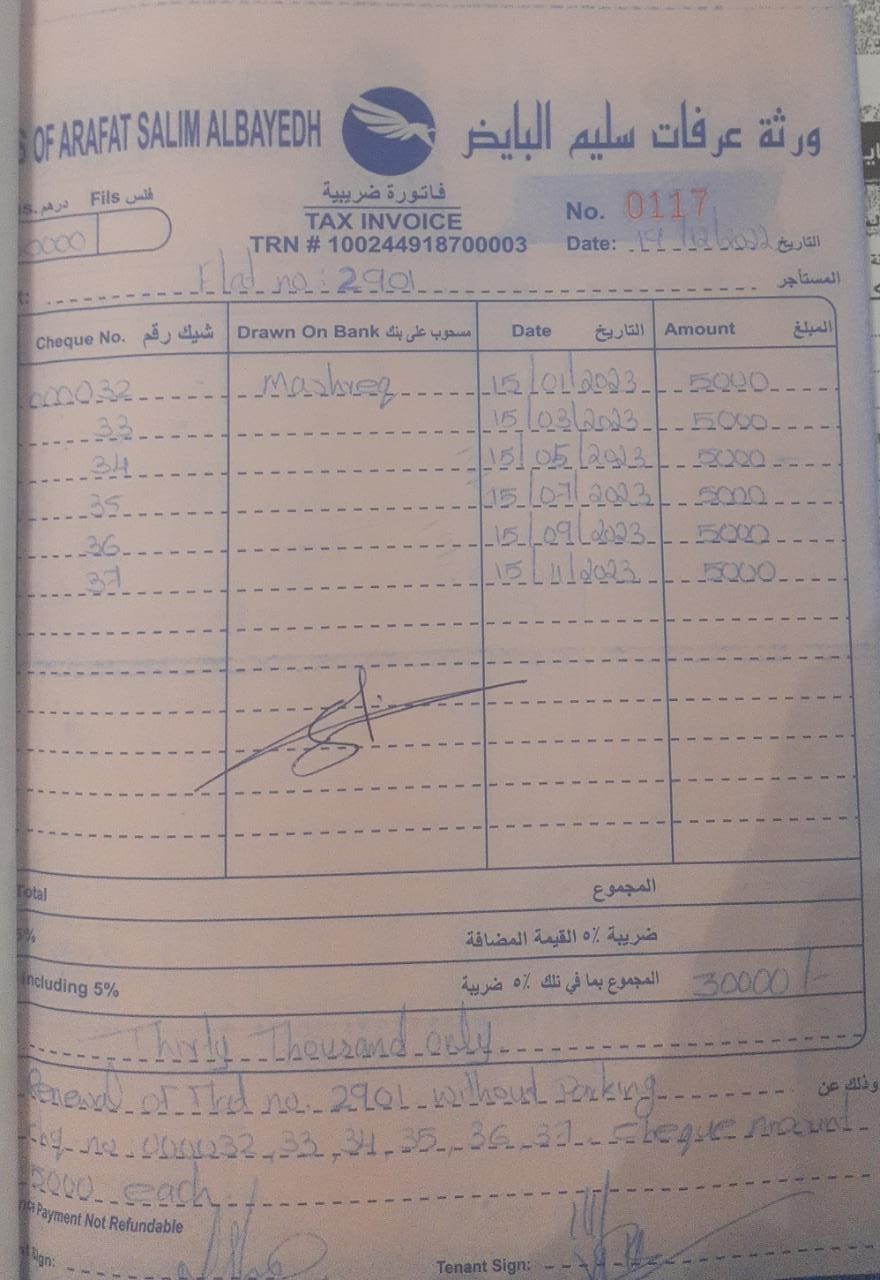 OF ARAFAT SALIM ALBAYEDH ورثة عرفات سليم البايض
درهم Fils فلس
0000
فاتورة ضريبية
TAX INVOICE
TRN # 100244918700003
No. 0117
Date: 19/12/2022 التاريخ
Flat no: 2901 المستأجر
Cheque No. شيك رقم Drawn On Bank مسحوب على بنك Date التاريخ Amount المبلغ
000032 Mashreq 15/01/2023 5000
33 15/03/2023 5000
34 15/05/2023 5000
35 15/07/2023 5000
36 15/09/2023 5000
37 15/11/2023 5000
Total المجموع
5% ضريبة ٥٪ القيمة المضافة
including 5% المجموع بما في ذلك ٥٪ ضريبة 30000/-
Thirty Thousand only
Renewal of Flat no. 2901 without Parking وذلك عن
Chq no. 000032, 33, 34, 35, 36, 37 Cheque Amount
5000 each.
Payment Not Refundable
Sign: Tenant Sign: